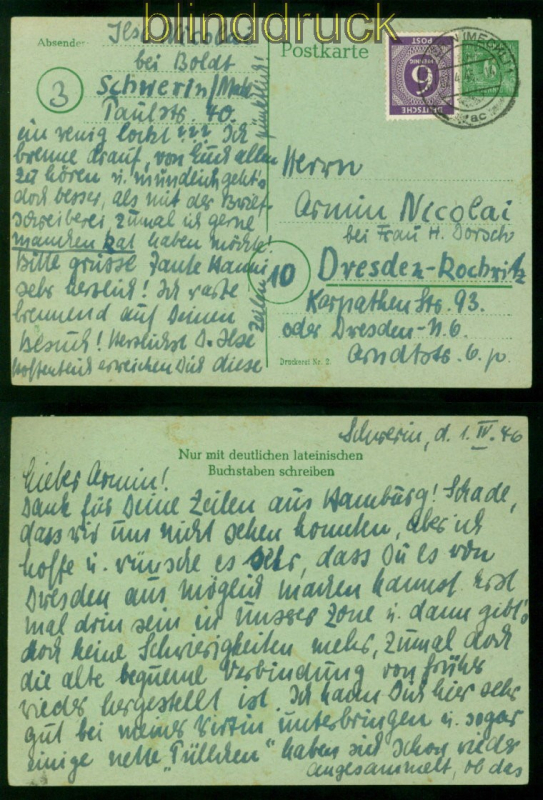 blinddruck
Absender
Ilse Nicolai
bei Boldt
3
Schwerin/Meckl
Paulstr. 40.
Postkarte
DEUTSCHE
POST
6
ein wenig lockt ??? Ich
brenne drauf, von Euch allen
zu hören u. mündlich geht's
doch besser, als mit der Brief-
schreiberei, zumal ich gerne
manchen Rat haben möchte!
Bitte grüsse Tante Hanni
sehr herzlich! Ich warte
brennend auf Deinen
Besuch! Herzlichst D. Ilse
Hoffentlich erreichen Dich diese
Zeilen pünktlich!
Herrn
Armin Nicolai
bei Frau H. Dorsch
10
Dresden-Rochwitz
Karpathenstr. 93.
oder Dresden-N.6
Arndtstr. 6. p.
Druckerei Nr. 2
Schwerin, d. 1. IV. 46
Nur mit deutlichen lateinischen
Buchstaben schreiben
Lieber Armin!
Dank für Deine Zeilen aus Hamburg! Schade,
dass wir uns nicht sehen konnten, aber ich
hoffe u. wünsche es sehr, dass Du es von
Dresden aus möglich machen kannst. Erst
mal drin sein in unsrer Zone u. dann gibt's
doch keine Schwierigkeiten mehr, zumal doch
die alte bequeme Verbindung von früher
wieder hergestellt ist. Ich kann Dich hier sehr
gut bei meiner Wirtin unterbringen u. sogar
einige nette „Tüllchen" haben sich schon wieder
angesammelt, ob das